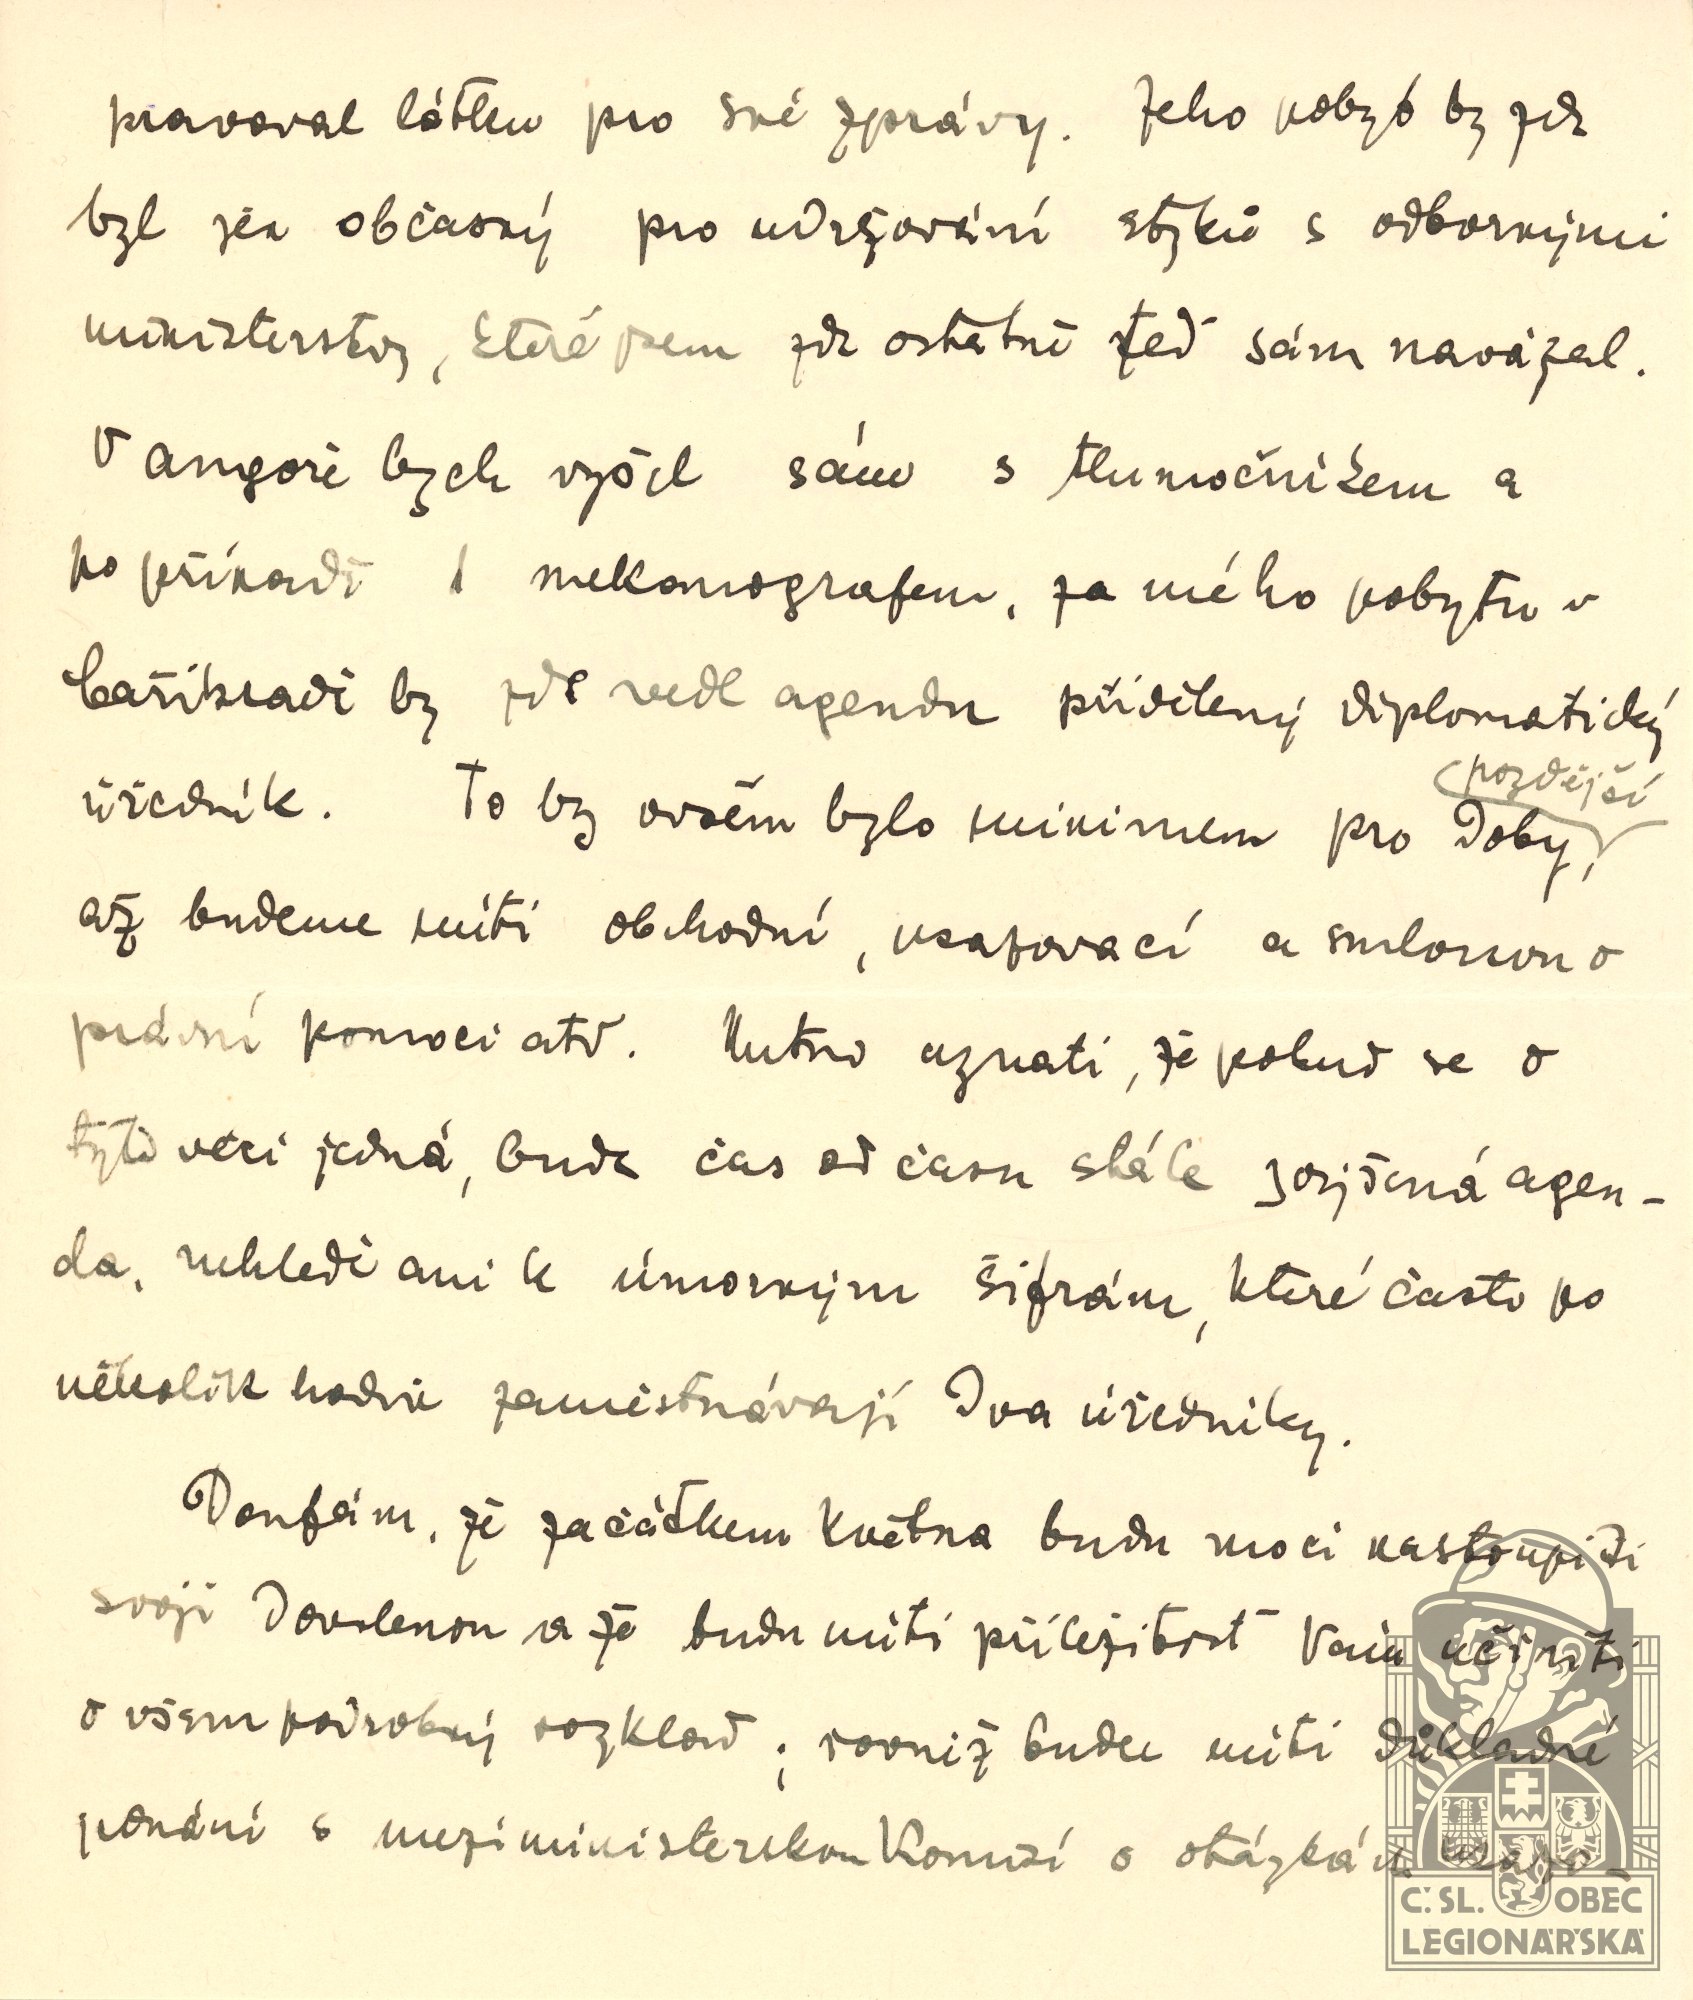 pracoval látku pro své zprávy. Jeho pobyt by zde
byl jen občasný pro udržování styků s odbornými
ministerstvy, které jsem zde ostatně teď sám navázal.
V Angoře bych vyšel sám s tlumočníkem a
po případě s mekanografem, za mého pobytu v
Cařihradě by zde vedl agendu přidělený diplomatický
úředník. To by ovšem bylo minimem pro pozdější doby,
až budeme míti obchodní, usazovací a smlouvu o
právní pomoci atd. Nutno uznati, že pokud se o
tyto věci jedná, bude čas od času stále zvýšená agen-
da, nehledě ani k úmorným šifrám, které často po
několik hodin zaměstnávají dva úředníky.
Doufám, že začátkem května budu moci nastoupiti
svoji dovolenou a že budu míti příležitost Vám učiniti
o všem podrobný rozklad; rovněž budu míti důkladné
jednání s meziministerskou komisí o otázkách usazo-
Č. SL. OBEC
LEGIONÁŘSKÁ